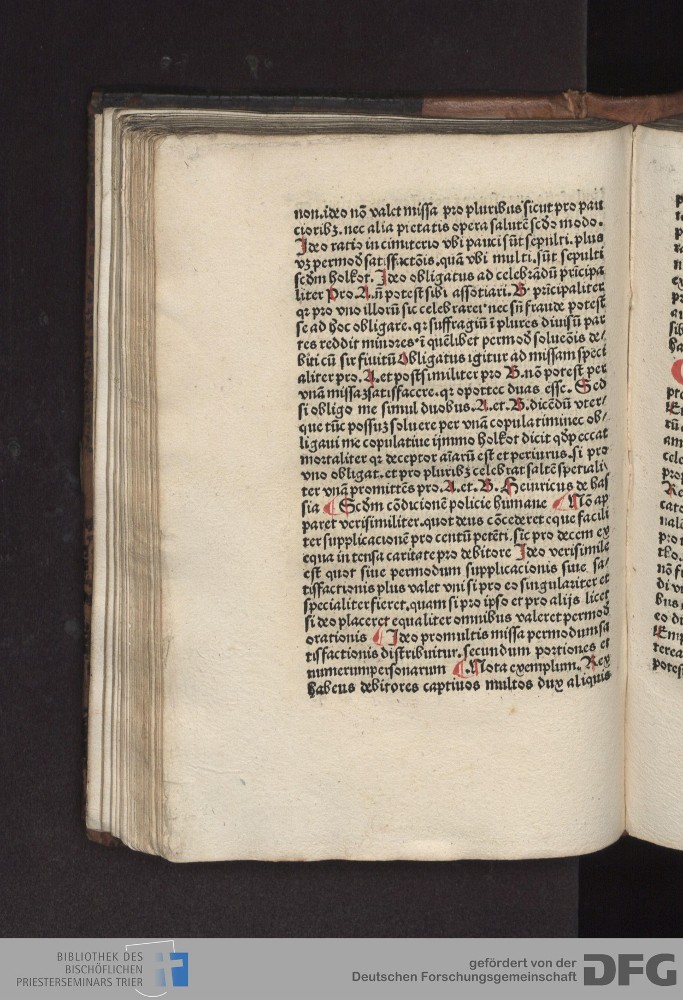 non. ideo nō valet missa pro pluribus sicut pro pau
cioribꝫ. nec alia pietatis opera salutē scdo modo.
Ideo ratio in cimiterio vbi pauci sūt sepulti. plus
vꝫ per mod satisfactōis. quā vbi multi. sūt sepulti
scdm holkot. Ideo obligatus ad celebrādū prīcipa
liter pro. A. n̄ potest sibi assotiari. B. prīcipaliter
qꝛ pro vno illorū sic celebraret nec sn̄ fraude potest
se ad hoc obligare. qꝛ suffragiū ī plures diuisū par
tes reddit minores. ī quēlibet per mod solucōis de/
biti cū sit finitū Obligatus igitur ad missam speci
aliter pro. A. et post similiter pro B. nō potest per
vnā missaꝫ satisfacere. qꝛ oportet duas esse. Sed
si obligo me simul duobus. A. et. B. dicēdū vter/
que tūc possuꝫ soluere per vnā copulatim nec ob/
ligaui me copulatiue ijmmo holkot dicit qd peccat
mortaliter qꝛ deceptor aīarū est et periurus. si pro
vno obligat. et pro pluribꝫ celebrat saltē speciali
ter vnā promittēs pro. A. et. B. Heinricus de has
sia Scdm cōdicionē policie humane Nō ap
paret verisimiliter. quot deus cōcederet eque facili
ter supplicacionē pro centū petēti. sic pro decem ex
equa intensa caritate pro debitore Ideo verisimile
est quot siue per modum supplicacionis siue sa/
tisfactionis plus valet vni si pro eo singulariter et
specialiter fieret. quam si pro ipso et pro alijs licet
si deo placeret equaliter omnibus valeret per mod
orationis Ideo pro multis missa per modum sa
tisfactionis distribuitur. secundum portiones et
numerum personarum Nota exemplum. Rex
habens debitores captiuos multos dux aliquis
BIBLIOTHEK DES
BISCHÖFLICHEN
PRIESTERSEMINARS TRIER
gefördert von der
Deutschen Forschungsgemeinschaft
DFG